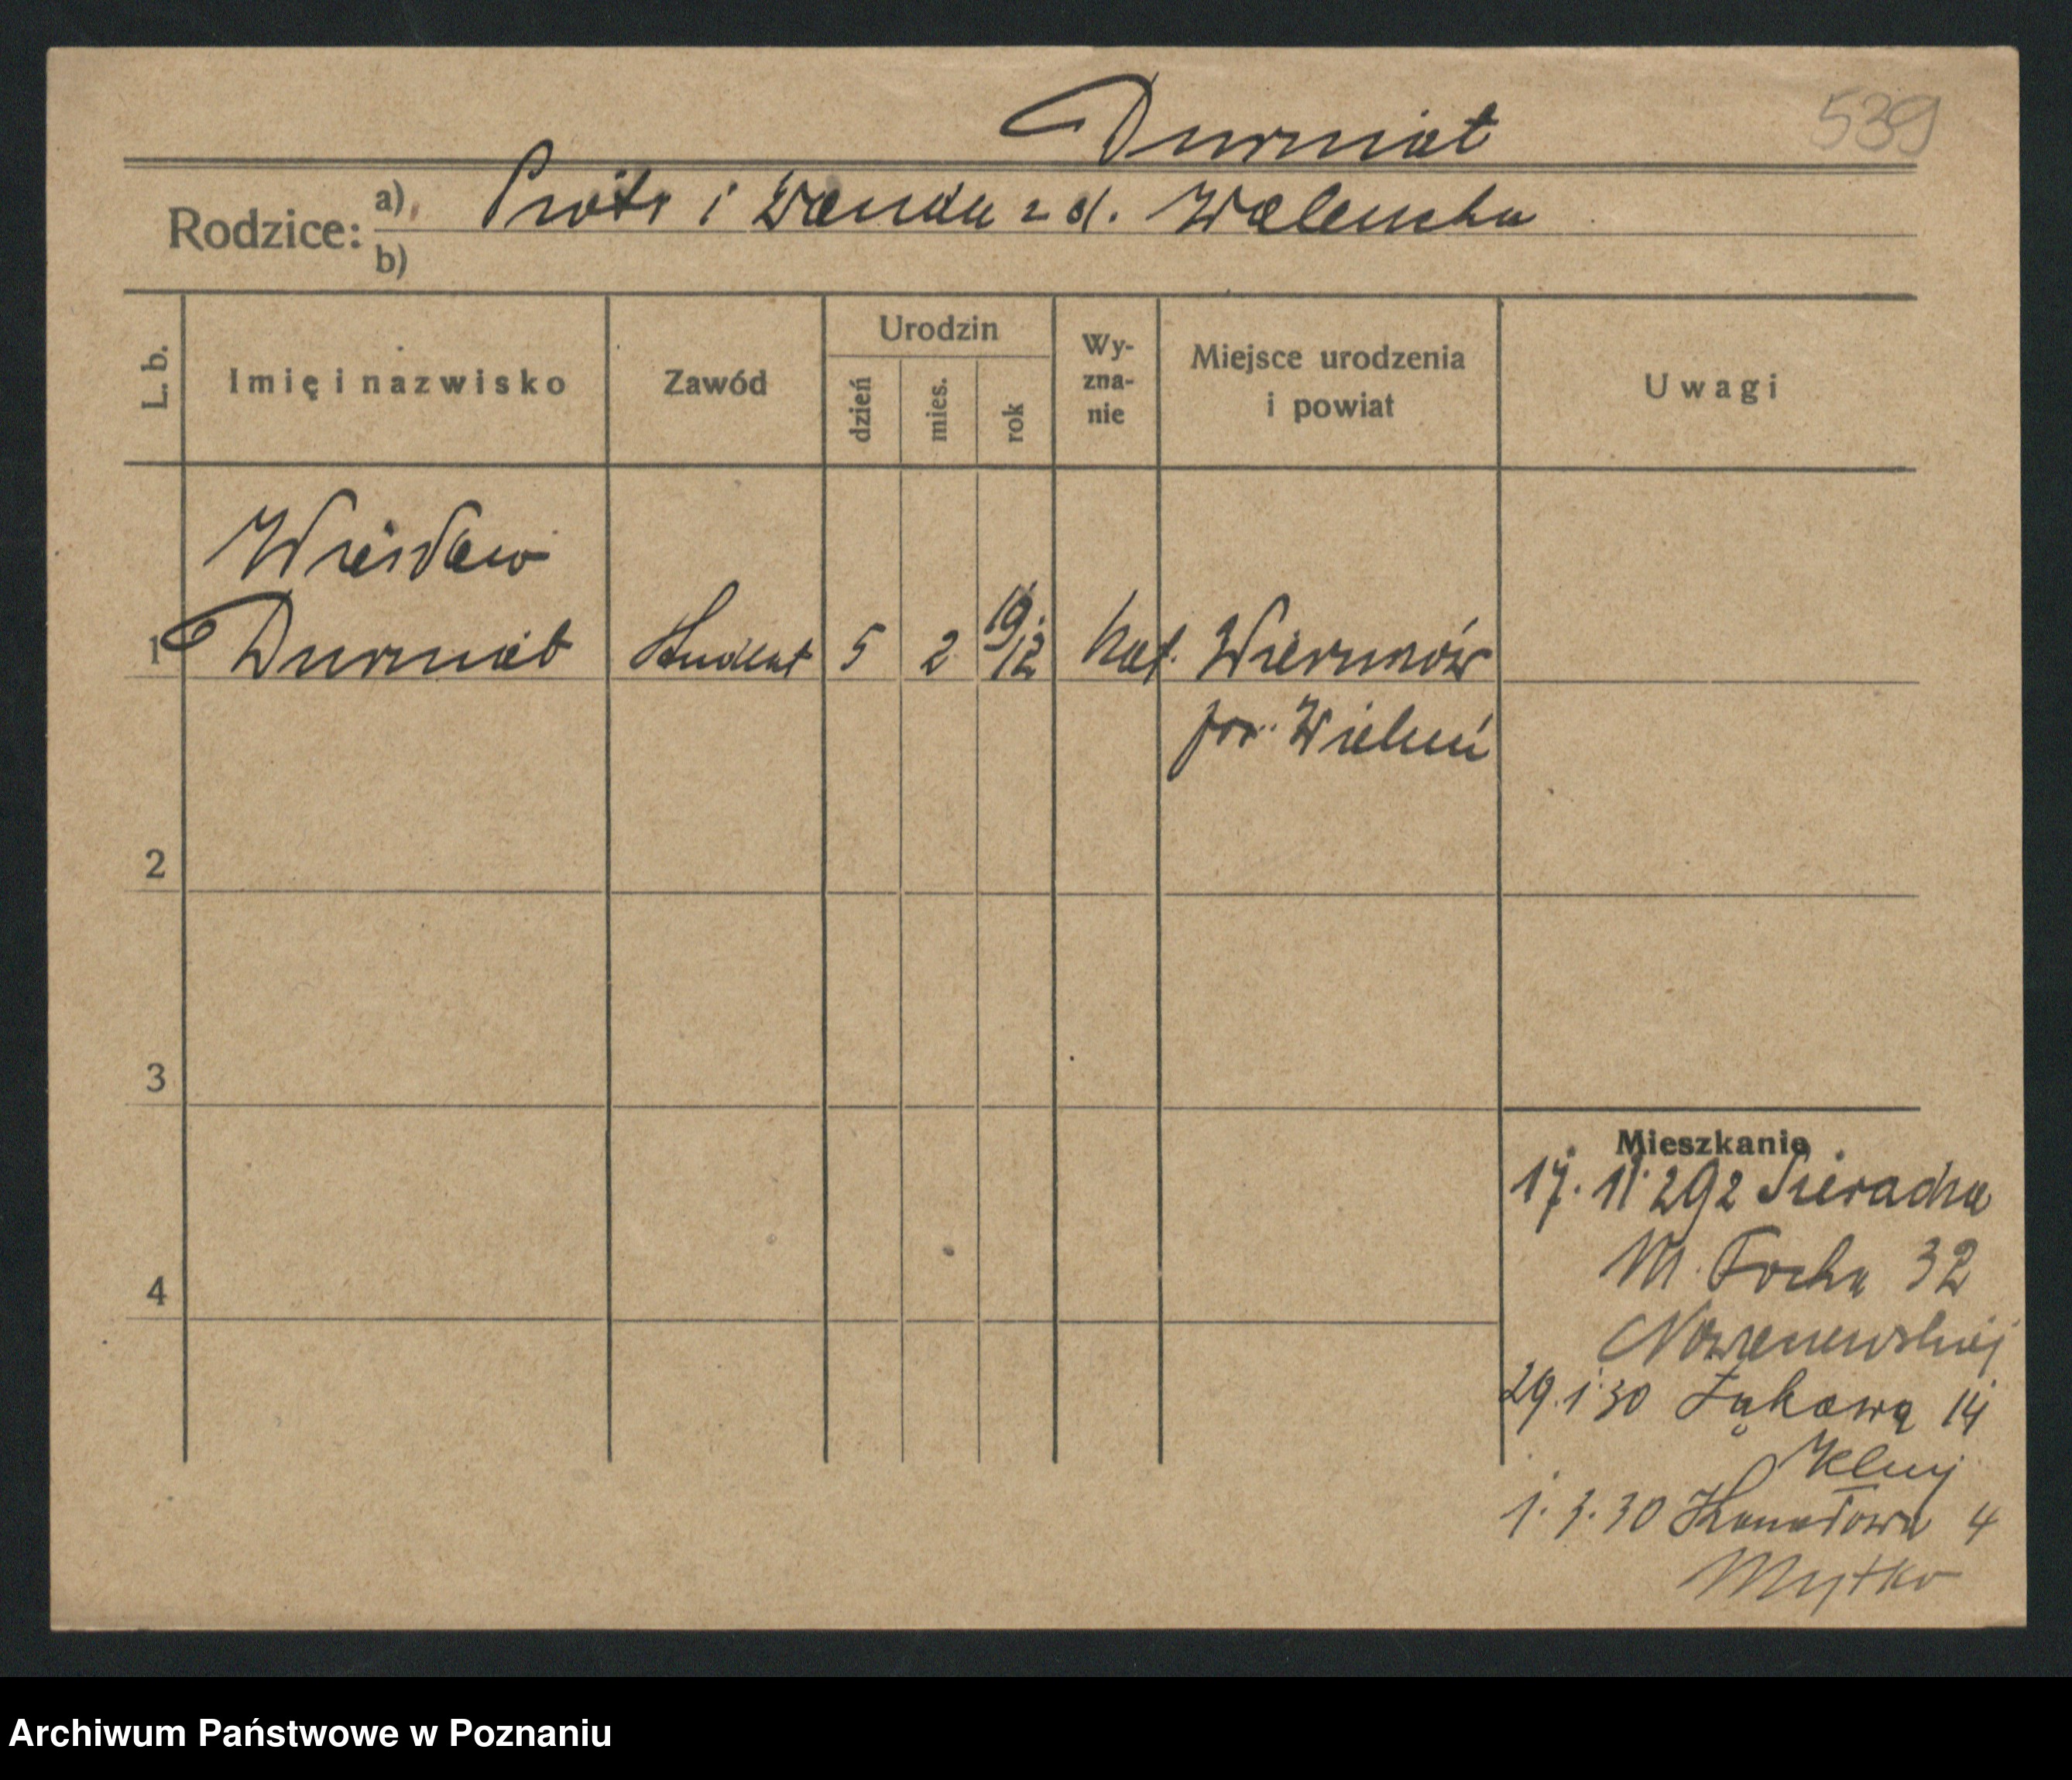 Durniat 539
Rodzice: a) Piotr i Wanda z d. Walencka
b)
L. b. Imię i nazwisko Zawód Urodzin dzień mies. rok Wyznanie Miejsce urodzenia i powiat Uwagi
Wiesław
1 Durniat Student 5 2 19/12 kat. Wieruszów
pow. Wieluń
2
3
4
Mieszkanie
17. 11 29 z Sieradza
M. Focha 32
29. 1 30 Łąkowa 14
1. 3. 30 Kanałowa 4
Mytko
Archiwum Państwowe w Poznaniu